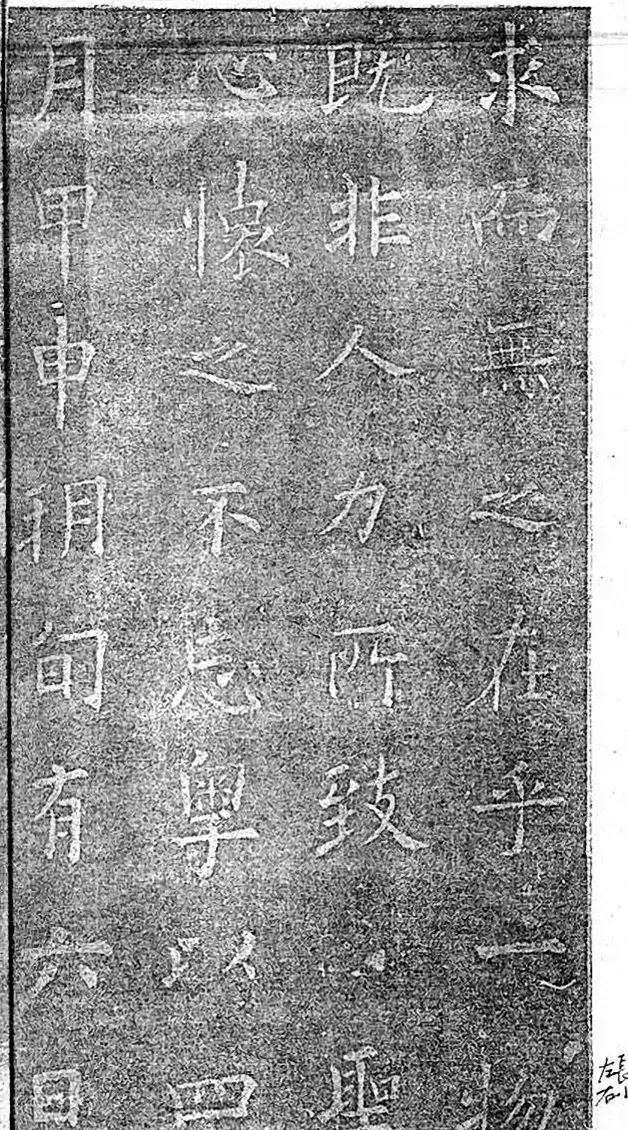 求而無之在乎一物
既非人力所致聖
心懷之不忘粵以四
月甲申朔旬有六日
左長